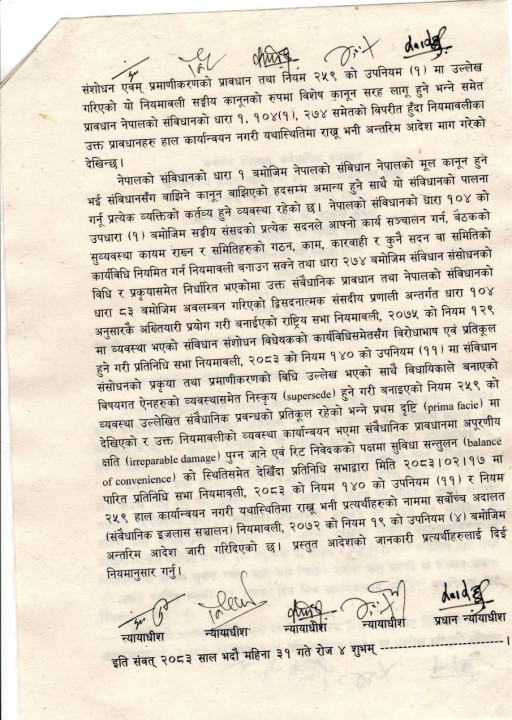 संशोधन एवम् प्रमाणीकरणको प्रावधान तथा नियम २५९ को उपनियम (१) मा उल्लेख
गरिएको यो नियमावली सङ्घीय कानूनको रुपमा विशेष कानून सरह लागू हुने भन्ने समेत
प्रावधान नेपालको संविधानको धारा १, १०४(१), २७४ समेतको विपरीत हुँदा नियमावलीका
उक्त प्रावधानहरु हाल कार्यान्वयन नगरी यथास्थितिमा राख्नू भनी अन्तरिम आदेश माग गरेको
देखिन्छ।
नेपालको संविधानको धारा १ बमोजिम नेपालको संविधान नेपालको मूल कानून हुने
भई संविधानसँग बाझिने कानून बाझिएको हदसम्म अमान्य हुने साथै यो संविधानको पालना
गर्नू प्रत्येक व्यक्तिको कर्तव्य हुने व्यवस्था रहेको छ। नेपालको संविधानको धारा १०४ को
उपधारा (१) बमोजिम सङ्घीय संसदको प्रत्येक सदनले आफ्नो कार्य सञ्चालन गर्न, बैठकको
सुव्यवस्था कायम राख्न र समितिहरुको गठन, काम, कारवाही र कुनै सदन वा समितिको
कार्यविधि नियमित गर्न नियमावली बनाउन सक्ने तथा धारा २७४ बमोजिम संविधान संसोधनको
विधि र प्रकृयासमेत निर्धारित भएकोमा उक्त संबैधानिक प्रावधान तथा नेपालको संविधानको
धारा ८३ बमोजिम अवलम्बन गरिएको द्विसदनात्मक संसदीय प्रणाली अन्तर्गत धारा १०४
अनुसारकै अख्तियारी प्रयोग गरी बनाईएको राष्ट्रिय सभा नियमावली, २०७५ को नियम १२९
मा व्यवस्था भएको संविधान संशोधन विधेयकको कार्यविधिसमेतसँग विरोधाभाष एवं प्रतिकूल
हुने गरी प्रतिनिधि सभा नियमावली, २०८३ को नियम १४० को उपनियम (११) मा संविधान
संसोधनको प्रकृया तथा प्रमाणीकरणको बिधि उल्लेख भएको साथै विधायिकाले बनाएको
बिषयगत ऐनहरुको व्यवस्थासमेत निस्कृय (supersede) हुने गरी बनाइएको नियम २५९ को
व्यवस्था उल्लेखित संवैधानिक प्रबन्धको प्रतिकूल रहेको भन्ने प्रथम दृष्टि (prima facie) मा
देखिएको र उक्त नियमावलीको व्यवस्था कार्यान्वयन भएमा संवैधानिक प्रावधानमा अपूरणीय
क्षति (irreparable damage) पुग्न जाने एवं रिट निवेदकको पक्षमा सुविधा सन्तुलन (balance
of convenience) को स्थितिसमेत देखिँदा प्रतिनिधि सभाद्वारा मिति २०८३।०२।१७ मा
पारित प्रतिनिधि सभा नियमावली, २०८३ को नियम १४० को उपनियम (११) र नियम
२५९ हाल कार्यान्वयन नगरी यथास्थितिमा राख्नू भनी प्रत्यर्थीहरुको नाममा सर्वोच्च अदालत
(संवैधानिक इजलास सञ्चालन) नियमावली, २०७२ को नियम १९ को उपनियम (४) बमोजिम
अन्तरिम आदेश जारी गरिदिएको छ। प्रस्तुत आदेशको जानकारी प्रत्यर्थीहरुलाई दिई
नियमानुसार गर्नु।
न्यायाधीश न्यायाधीश न्यायाधीश न्यायाधीश प्रधान न्यायाधीश
इति संवत् २०८३ साल भदौ महिना ३१ गते रोज ४ शुभम् ---------------------------।